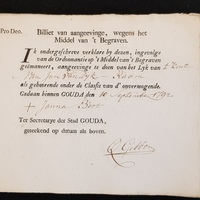 Pro Deo. Billiet van aangeevinge, wegens het
Middel van 't Begraven.
Ik ondergeschreve verklare by dezen, ingevolge
van de Ordonnantie op 't Middel van 't Begraven
geëmaneert, aangeevinge te doen van het Lyk van
als gehoorende onder de Classis van d' onvermogende.
Gedaan binnen GOUDA, den 10 September 1792
+ Janna
Ter Secretarye der Stad GOUDA,
geteekend op datum als boven.